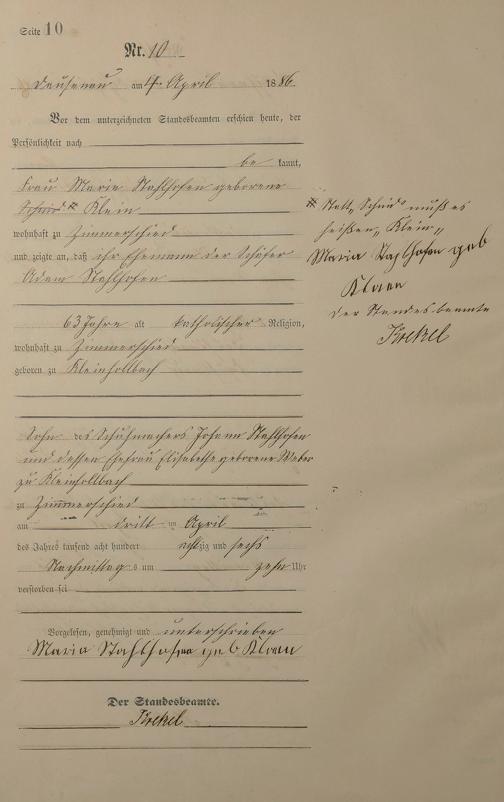 Seite 10
Nr. 10
Dausenau am 4. April 1886.
Vor dem unterzeichneten Standesbeamten erschien heute, der
Persönlichkeit nach
be kannt,
Frau Maria Stahlhofen geborene
Schmid # Klein
wohnhaft zu Zimmerschied
und zeigte an, daß ihr Ehemann der Schäfer
Adam Stahlhofen
63 Jahre alt katholischer Religion,
wohnhaft zu Zimmerschied
geboren zu Kleinhollbach
Sohn des Schuhmachers Johann Stahlhofen
und dessen Ehefrau Elisabethe geborene Weber
zu Kleinhollbach
zu Zimmerschied
am dritt en April
des Jahres tausend acht hundert achtzig und sechs
Nachmittag s um zehn Uhr
verstorben sei
Vorgelesen, genehmigt und unterschrieben
Maria Stahlhofen geb Klaan
Der Standesbeamte.
Krekel
# Statt „Schmid" muß es
heißen „Klein"
Maria Stahlhofen geb
Klaan
Der Standesbeamte
Krekel